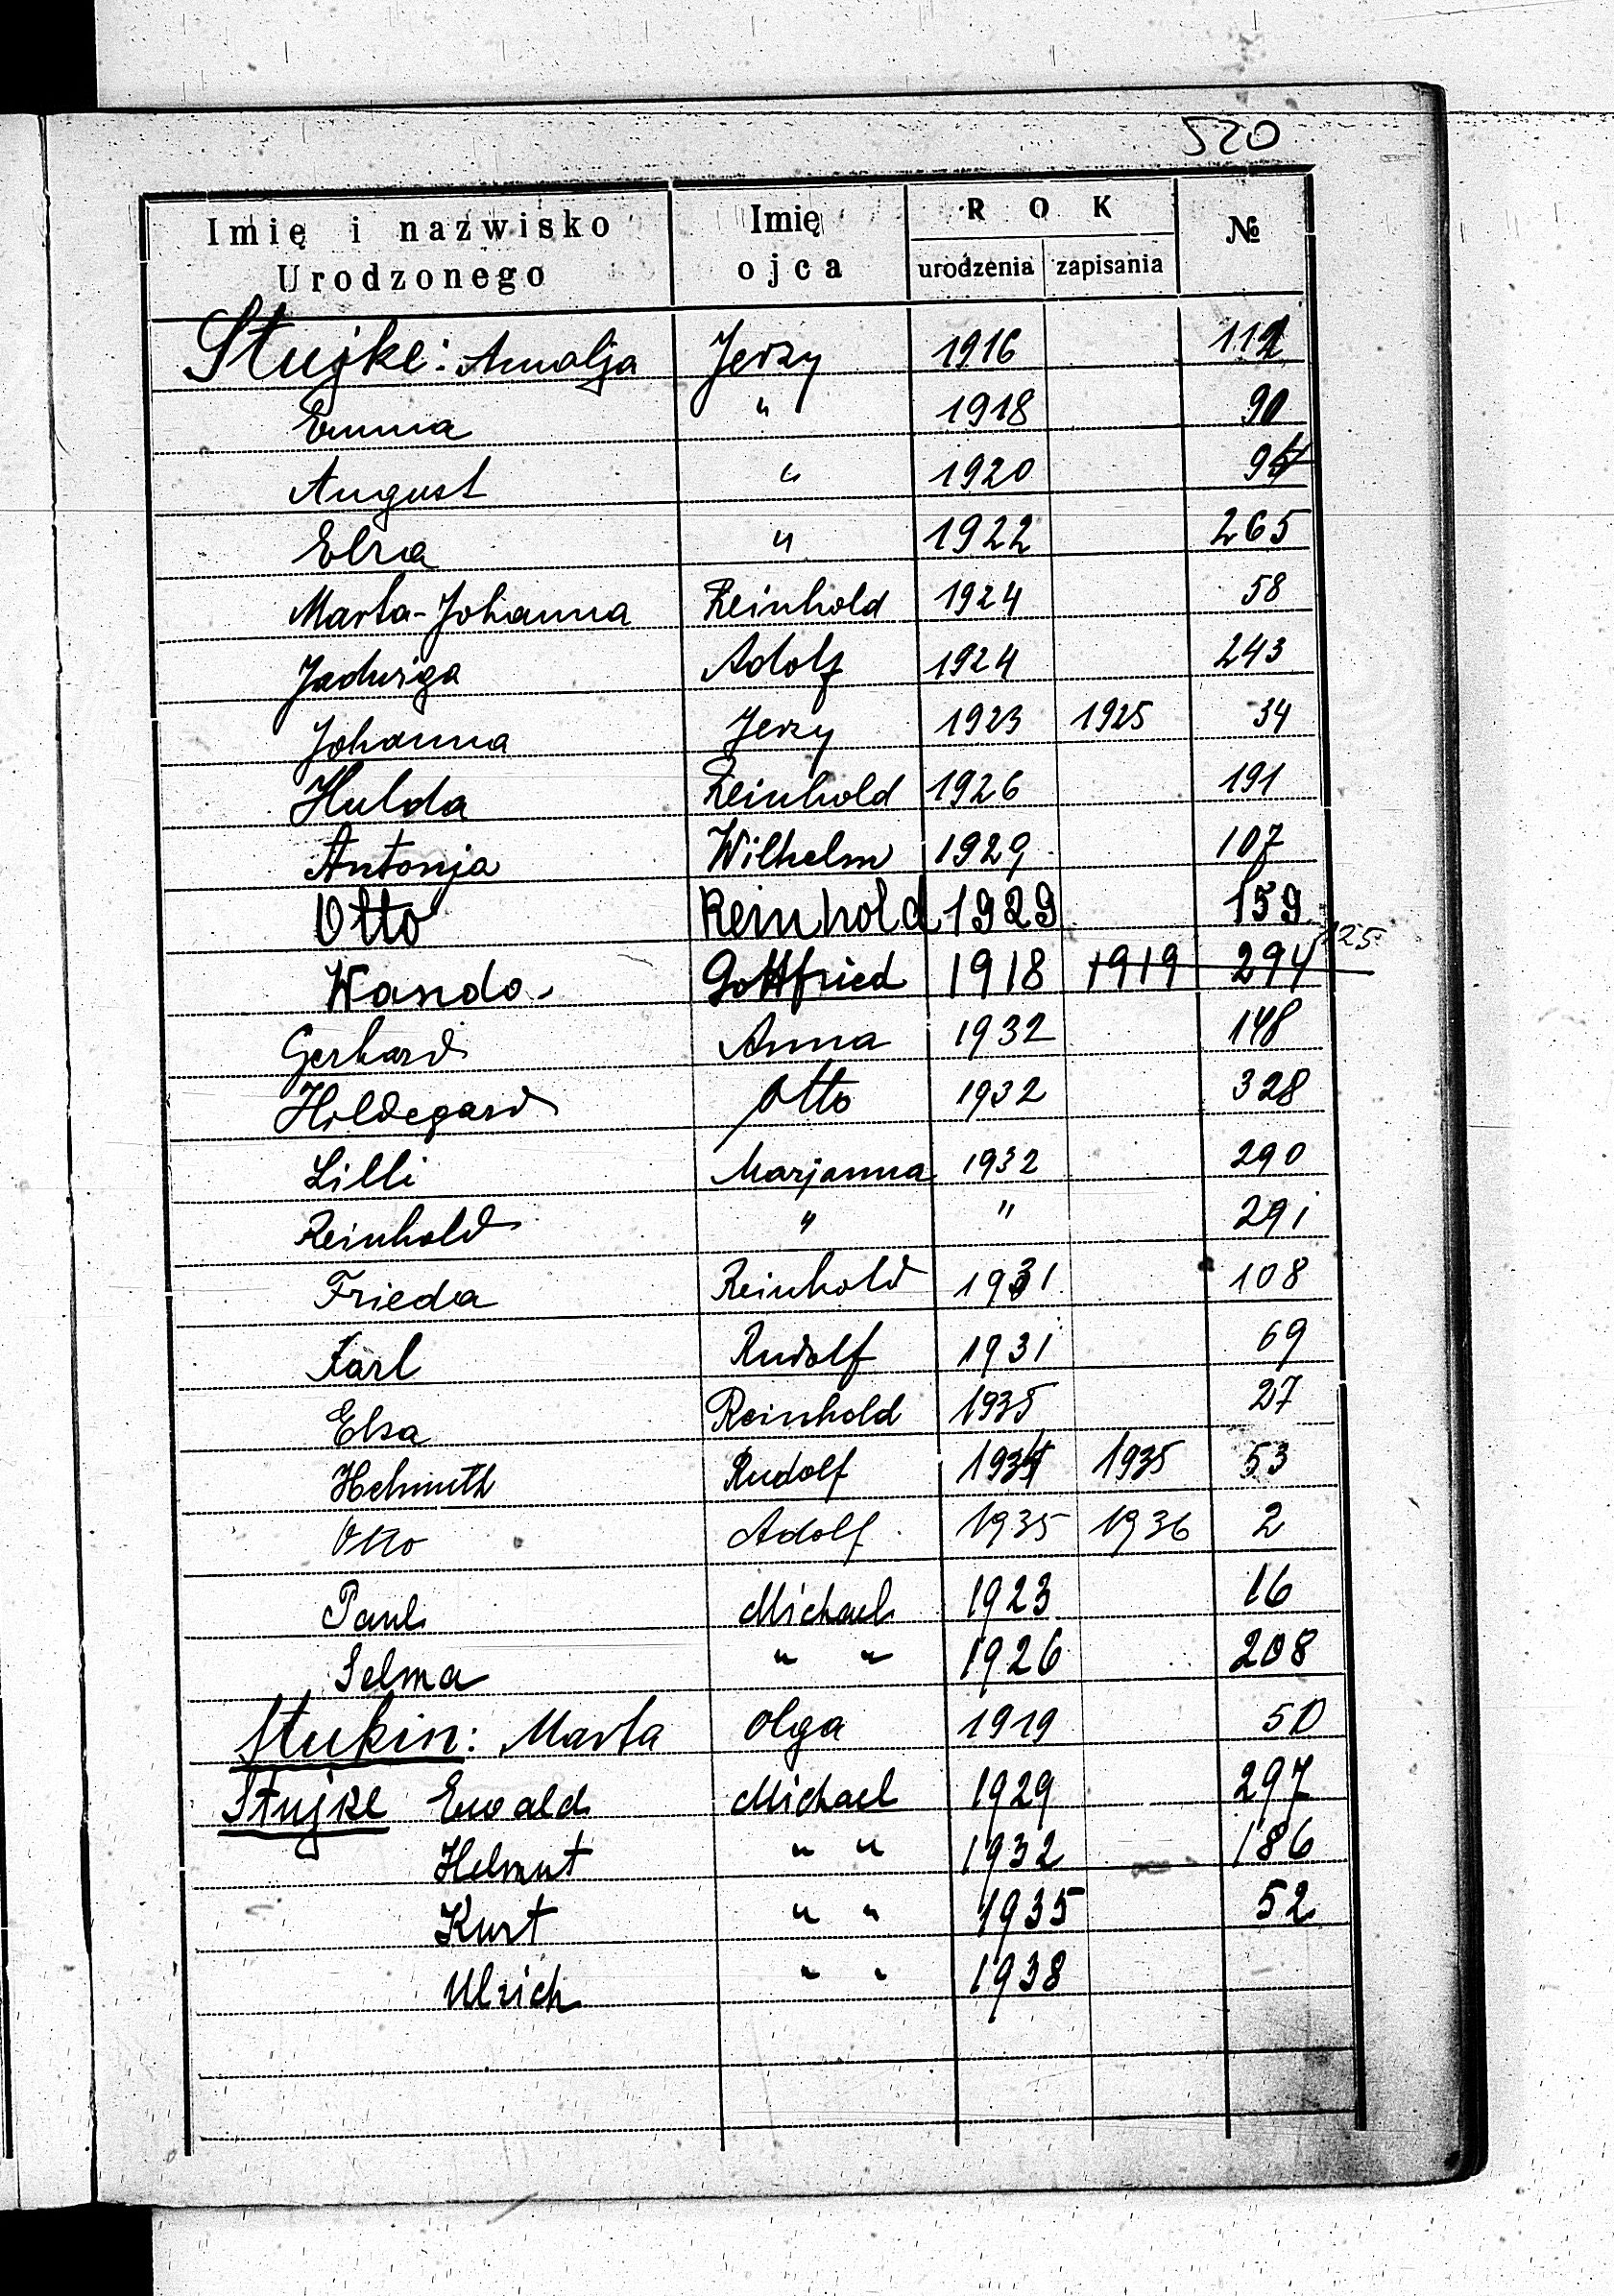 520
Imię i nazwisko Urodzonego | Imię ojca | ROK urodzenia | zapisania | №
Stujke: Amalja Jerzy 1916 112
Emma " 1918 90
August " 1920
Elza " 1922 265
Marta-Johanna Reinhold 1924 58
Jadwiga Adolf 1924 243
Johanna Jerzy 1923 1925 34
Hulda Reinhold 1926 191
Antonja Wilhelm 1929 107
Otto Reinhold 1929 159
Wanda Gottfried 1918 1919 294 125
Gerhard Anna 1932 148
Hildegard Otto 1932 328
Lilli Marjanna 1932 290
Reinhold " " 291
Frieda Reinhold 1931 108
Karl Rudolf 1931 69
Elsa Reinhold 1935 27
Helmuth Rudolf 1934 1935 53
Otto Adolf 1935 1936 2
Paul Michael 1923 16
Selma " " 1926 208
Stukin: Marta Olga 1919 50
Stujke Ewald Michael 1929 297
Helmut " " 1932 186
Kurt " " 1935 52
Ulrich " " 1938